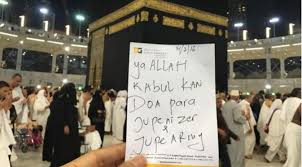 4/3/16
ya ALLAH
KABUL KAN
DOA para
JupenIzer
&
JupeARmy